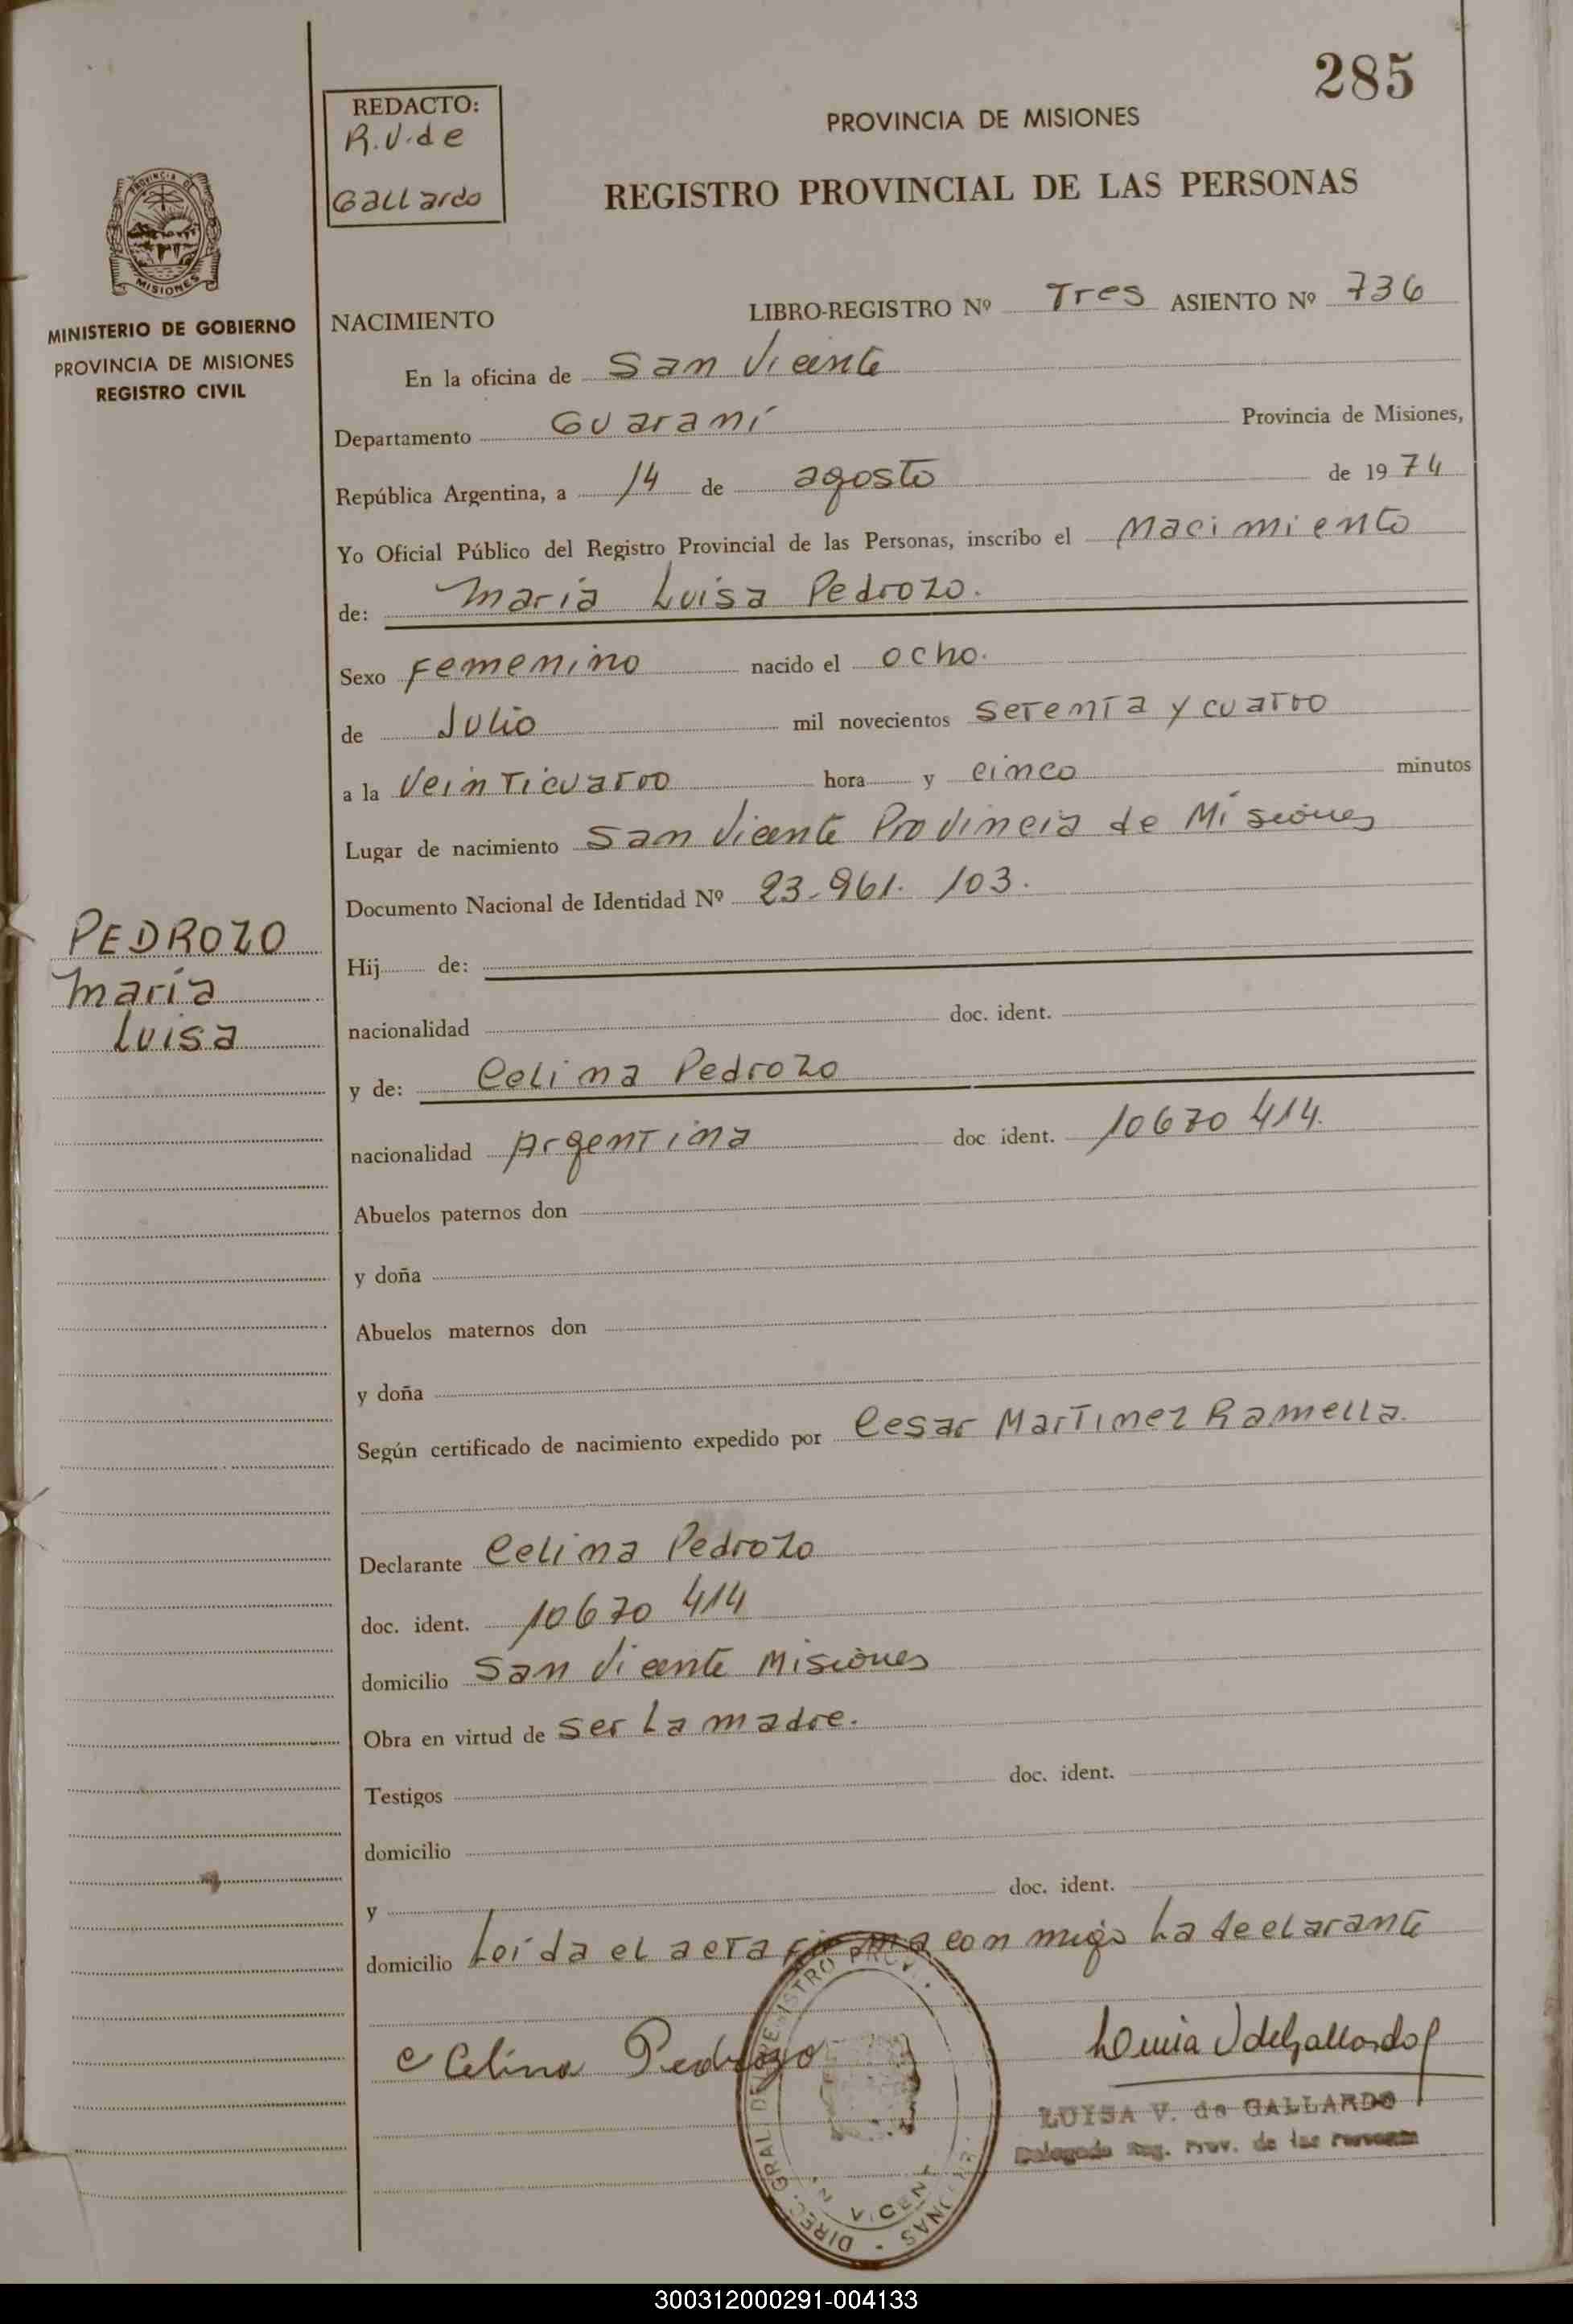 285
REDACTO:
R.V.de
Gallardo
PROVINCIA DE MISIONES
REGISTRO PROVINCIAL DE LAS PERSONAS
PROVINCIA DE
MISIONES
MINISTERIO DE GOBIERNO
PROVINCIA DE MISIONES
REGISTRO CIVIL
NACIMIENTO LIBRO-REGISTRO Nº Tres ASIENTO Nº 736
En la oficina de San Vicente
Departamento Guaraní Provincia de Misiones,
República Argentina, a 14 de agosto de 1974
Yo Oficial Público del Registro Provincial de las Personas, inscribo el Nacimiento
de: Maria Luisa Pedrozo.
Sexo Femenino nacido el ocho.
de Julio mil novecientos setenta y cuatro
a la Veinticuatro hora y cinco minutos
Lugar de nacimiento San Vicente Provincia de Misiones
Documento Nacional de Identidad Nº 23.961.103.
PEDROZO
Maria
Luisa
Hij de:
nacionalidad doc. ident.
y de: Celina Pedrozo
nacionalidad Argentina doc ident. 10670 414.
Abuelos paternos don
y doña
Abuelos maternos don
y doña
Según certificado de nacimiento expedido por Cesar Martinez Ramella.
Declarante Celina Pedrozo
doc. ident. 10670 414
domicilio San Vicente Misiones
Obra en virtud de ser La madre.
Testigos doc. ident.
domicilio
y doc. ident.
domicilio Leída el acta firma con migo La declarante
Celina Pedrozo
Luisa V de Gallardo
LUISA V. de GALLARDO
Delegada Reg. Prov. de las Personas
300312000291-004133